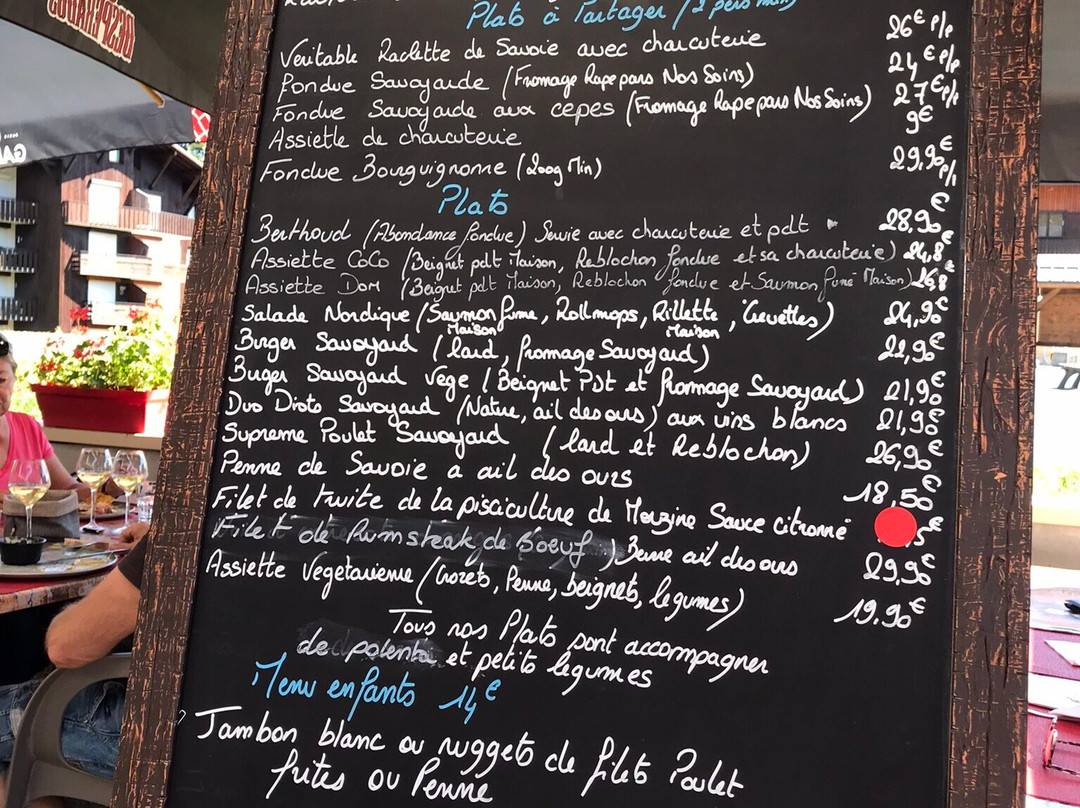 DESPERADOS
Plats à Partager (2 pers min)
Veritable Raclette de Savoie avec charcuterie 26€ p/p
Fondue Savoyarde (Fromage Rape pars Nos Soins) 24€ p/p
Fondue Savoyarde aux cepes (Fromage Rape pars Nos Soins) 27€ p/p
Assiette de charcuterie 9€
Fondue Bourguignonne (200g Min) 29,90€ p/p
Plats
Berthoud (Abondance fondue) Servie avec charcuterie et pdt 28,90€
Assiette CoCo (Beignet pdt Maison, Reblochon fondue et sa charcuterie) 24,8€
Assiette Dom (Beignet pdt Maison, Reblochon fondue et Saumon fumé Maison) 26,8€
Salade Nordique (Saumon fume Maison, Rollmops, Rillette Maison, Crevettes) 24,90€
Burger Savoyard (lard, fromage Savoyard) 22,90€
Buger Savoyard Vege (Beignet PDT et fromage Savoyard) 21,90€
Duo Diots Savoyard (Nature, ail des ours) aux vins blancs 21,90€
Supreme Poulet Savoyard (lard et Reblochon) 26,90€
Penne de Savoie a ail des ours 18,50€
Filet de truite de la pisciculture de Morzine Sauce citronné €
Filet de Rumsteak de Boeuf, Beurre ail des ours 29,90€
Assiette Vegetarienne (Crozets, Penne, beignets, legumes) 19.90€
Tous nos Plats sont accompagner
de polenta et petits legumes
Menu enfants 14€
Jambon blanc ou nuggets de filets Poulet
frites ou Penne